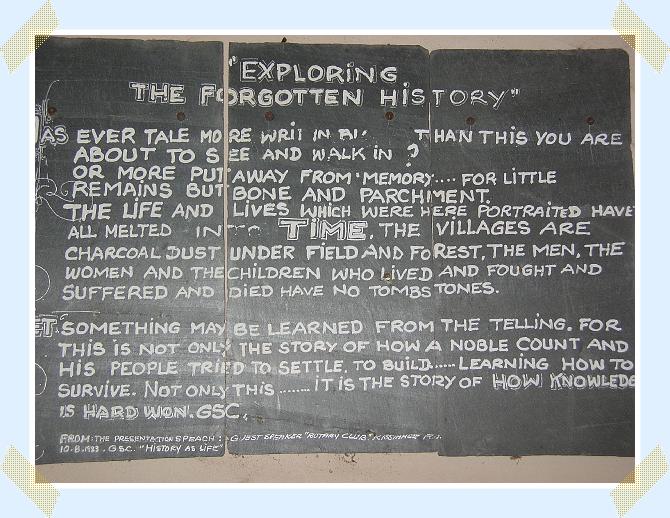 "EXPLORING
THE FORGOTTEN HISTORY"
AS EVER TALE MORE WRIT IN THAN THIS YOU ARE
ABOUT TO SEE AND WALK IN ?
OR MORE PUT AWAY FROM MEMORY.... FOR LITTLE
REMAINS BUT BONE AND PARCHMENT.
THE LIFE AND LIVES WHICH WERE HERE PORTRAITED HAVE
ALL MELTED INTO TIME. THE VILLAGES ARE
CHARCOAL JUST UNDER FIELD AND FOREST, THE MEN, THE
WOMEN AND THE CHILDREN WHO LIVED AND FOUGHT AND
SUFFERED AND DIED HAVE NO TOMBSTONES.
SOMETHING MAY BE LEARNED FROM THE TELLING. FOR
THIS IS NOT ONLY THE STORY OF HOW A NOBLE COUNT AND
HIS PEOPLE TRIED TO SETTLE. TO BUILD...... LEARNING HOW TO
SURVIVE. NOT ONLY THIS ....... IT IS THE STORY OF HOW KNOWLEDG
IS HARD WON. GSC.
FROM: THE PRESENTATION SPEACH : GUEST SPEAKER "ROTARY CLUB" KISSIMMEE
10.8.1983. GSC. "HISTORY AS LIFE"